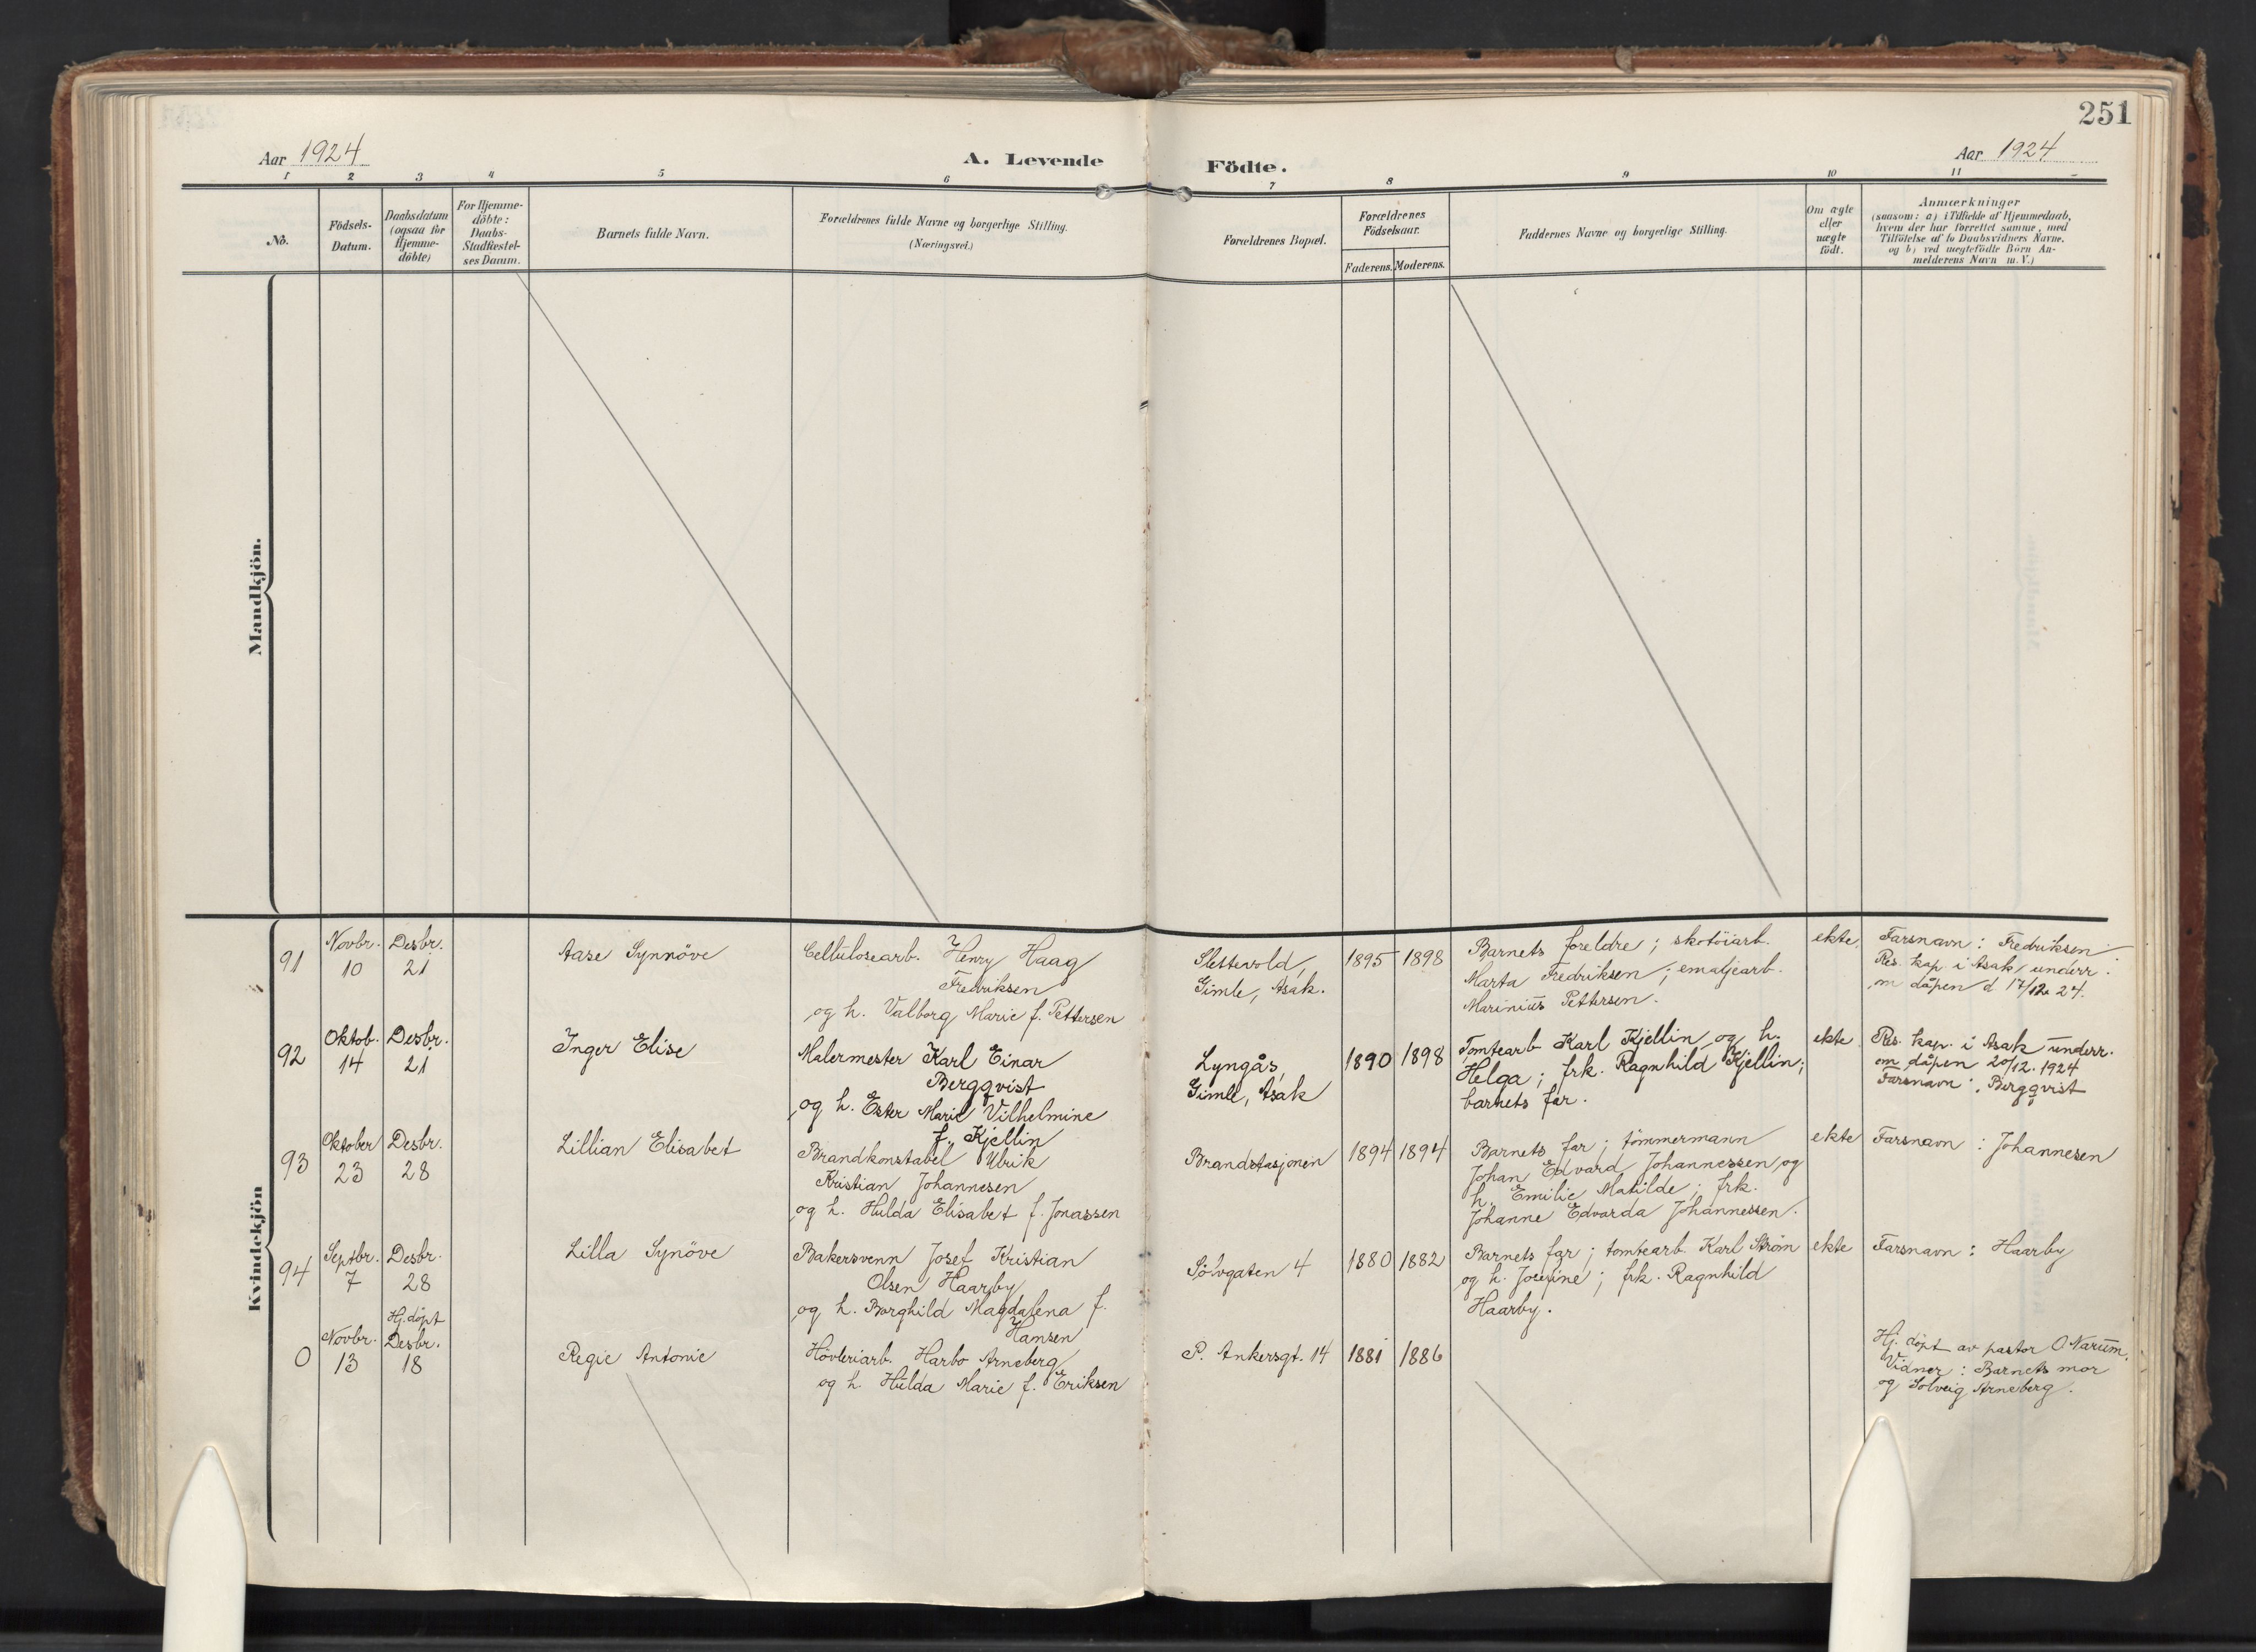 251
Aar 1924
A. Levende
Födte.
Aar 1924
1 2 3 4 5 6 7 8 9 10 11
No.
Födsels-
Datum.
Daabsdatum
(ogsaa for
Hjemme-
döbte)
For Hjemme-
döbte:
Daabs-
Stadfæstel-
ses Datum.
Barnets fulde Navn.
Forældrenes fulde Navne og borgerlige Stilling.
(Næringsvei.)
Forældrenes Bopæl.
Forældrenes
Födselsaar.
Faderens. Moderens.
Faddernes Navne og borgerlige Stilling.
Om ægte
eller
uægte
födt.
Anmærkninger
(saasom: a) i Tilfælde af Hjemmedaab,
hvem der har forrettet samme, med
Tilföielse af to Daabsvidners Navne.
og b) ved uægtefödte Börn An-
melderens Navn m. V.)
Mandkjön.
Kvindekjön
91
Novbr.
10
Desbr.
21
Aase Synnöve
Cellulosearb. Henry Haag
Fredriksen
og h. Valborg Marie f. Pettersen
Slettevold,
Gimle, Asak.
1895 1898
Barnets foreldre; skotöiarb.
Marta Fredriksen; emaljearb.
Marinius Pettersen.
ekte
Farsnavn: Fredriksen
Res. kap. i Asak underr.
om dåpen d. 17/12 24.
92
Oktob.
14
Desbr.
21
Inger Elise
Malermester Karl Einar
Bergqvist
og h. Ester Marie Vilhelmine
f. Kjellin
Lyngås,
Gimle, Asak
1890 1898
Tomtearb Karl Kjellin og h.
Helga; frk. Ragnhild Kjellin;
barnets far.
ekte
Res. kap. i Asak underr.
om dåpen 20/12. 1924
Farsnavn: Bergqvist
93
Oktober
23
Desbr.
28
Lillian Elisabet
Brandkonstabel Ulrik
Kristian Johannesen
og h. Hulda Elisabet f. Jonassen
Brandstasjonen
1894 1894
Barnets far; tömmermann
Johan Edvard Johannessen og
h. Emilie Matilde; frk.
Johanne Edvarda Johannessen.
ekte
Farsnavn: Johannesen
94
Septbr.
7
Desbr.
28
Lilla Synöve
Bakersvenn Josef Kristian
Olsen Haarby
og h. Borghild Magdalena f.
Hansen
Sölvgaten 4
1880 1882
Barnets far; tomtearb. Karl Ström
og h. Josefine; frk. Ragnhild
Haarby.
ekte
Farsnavn: Haarby
0
Novbr.
13
Hj. döpt
Desbr.
18
Regie Antonie
Hövleriarb. Harbo Arneberg
og h. Hulda Marie f. Eriksen
P. Ankersgt. 14
1881 1886
Hj. döpt av pastor O Narum.
Vidner: Barnets mor
og Solveig Arneberg.